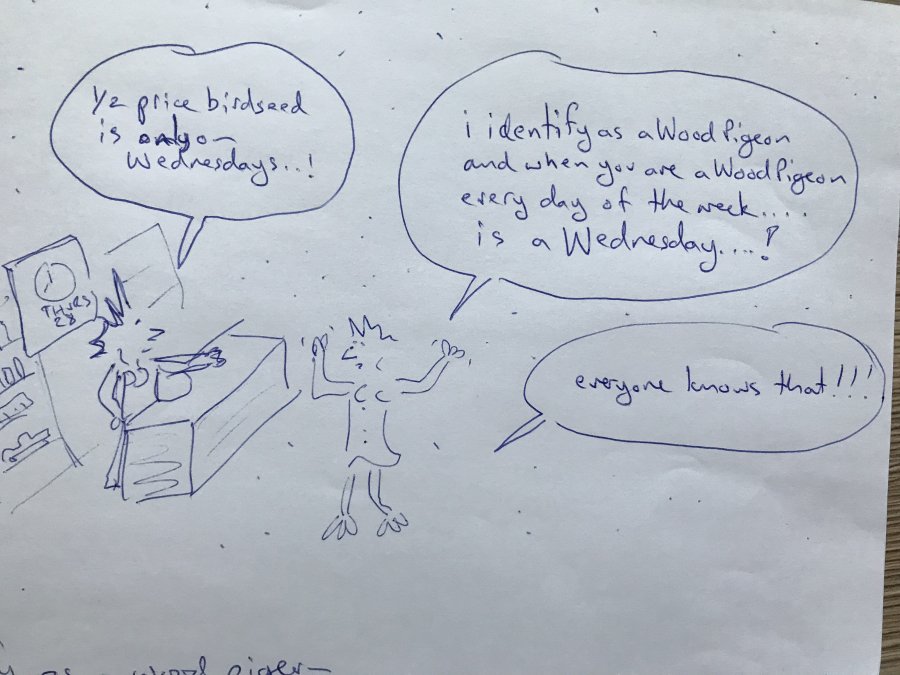 1/2 price birdseed
is only on
Wednesdays..!
i identify as a Wood Pigeon
and when you are a Wood Pigeon
every day of the week....
is a Wednesday....!
everyone knows that!!!
THURS
28
as a wood pigeon